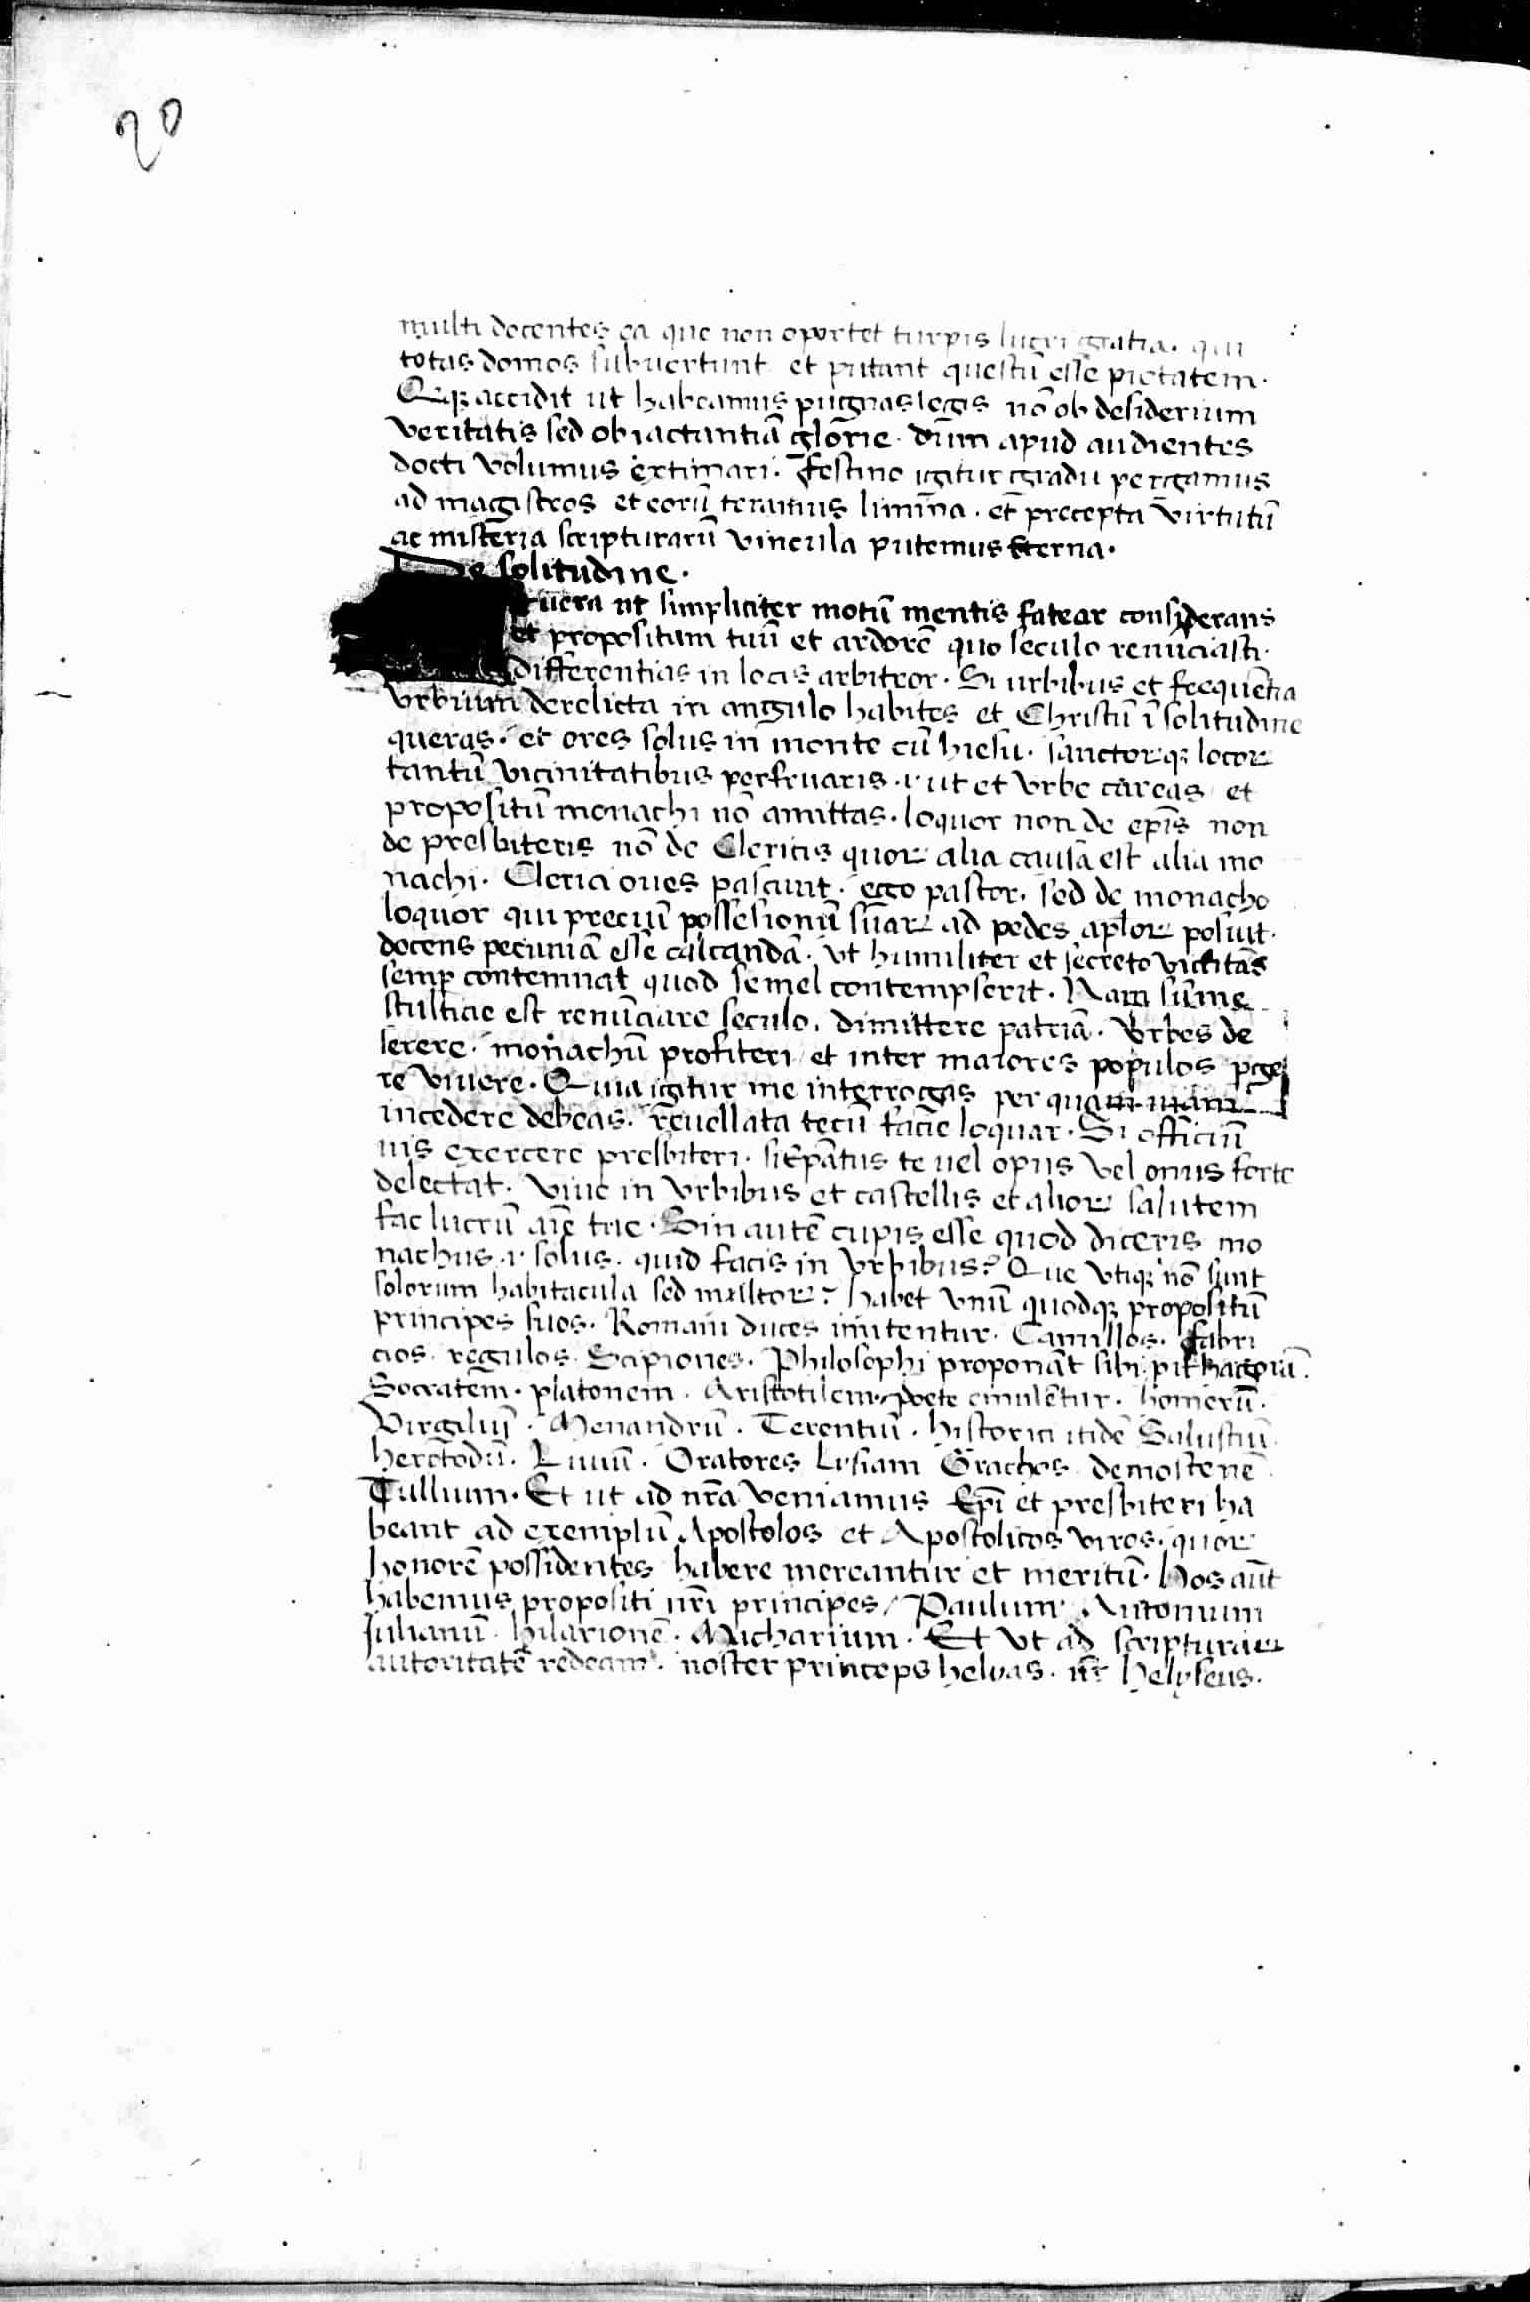 20
multi docentes ea que non oportet turpis lucri gratia. qui
totas domos subuertunt et putant questū esse pietatem.
Quapꝫ accidit ut habeamus pugnas legis nō ob desiderium
veritatis sed ob iactantiā glorie. dum apud audientes
docti volumus extimari. festino igitur gradu pergamus
ad magistros et eorū teramus limina. et precepta virtutū
ac misteria scripturarū vincula putemus eterna.
De solitudine.
uera ut simpliciter motū mentis fatear considerans
et propositum tuū et ardorē quo seculo renūciasti.
differentias in locis arbitror. Si urbibus et frequētia
vrbium derelicta in angulo habites et Christū ī solitudine
queras. et ores solus in monte cū hiesu. sanctorqꝫ locoꝝ
tantū vicinitatibus perfruaris. ut et vrbe careas et
propositū monachi nō amittas. loquor non de ep̄is non
de presbiteris nō de Clericis quoꝝ alia causa est alia mo
nachi. Clerici oues pascunt. ego pastor. sed de monacho
loquor qui preciū possesionū suaꝝ ad pedes apl̄oꝝ posuit.
docens pecuniā esse calcandā. vt humiliter et secreto victitās
semp̱ contemnat quod semel contempserit. Nam sūme
stulticie est renūciare seculo. dimittere patriā. Vrbes de
serere. monachū profiteri et inter maiores populos p̱ge
re viuere. Quia igitur me interrogas per quam uiam
incedere debeas. reuellata tecū facie loquar. Si officiū
uis exercere presbiteri. si Ep̄atus te uel opus vel onus forte
delectat. viue in vrbibus et castellis et alioꝝ salutem
fac lucrū aīe tue. Sin autē cupis esse quod diceris mo
nachus .i. solus. quid facis in vrbibus? Que vtiqꝫ nō sunt
solorum habitacula sed multoꝝ? habet vnū quodqꝫ propositū
principes suos. Romani duces imitentur. Camillos. fabri
cios. regulos. Scipiones. Philosophi proponāt sibi pithagorā.
Socratem. platonem. Aristotilem. poete emulētur. homerū.
Virgiliū. Menandrū. Terentiū. historici itidē Salustiū.
herotodū. Liuiū. Oratores Lysiam Grachos demostenē
Tullium. Et ut ad nr̄a veniamus Ep̄i et presbiteri ha
beant ad exemplū Apostolos et Apostolicos viros. quoꝝ
honorē possidentes habere mereantur et meritū. Nos aūt
habemus propositi nr̄i principes Paulum Antonium
Julianū. hilarionē. Macharium. Et vt ad scripturaꝝ
autoritatē redeam. noster princeps helyas. nr̄ helyseus.